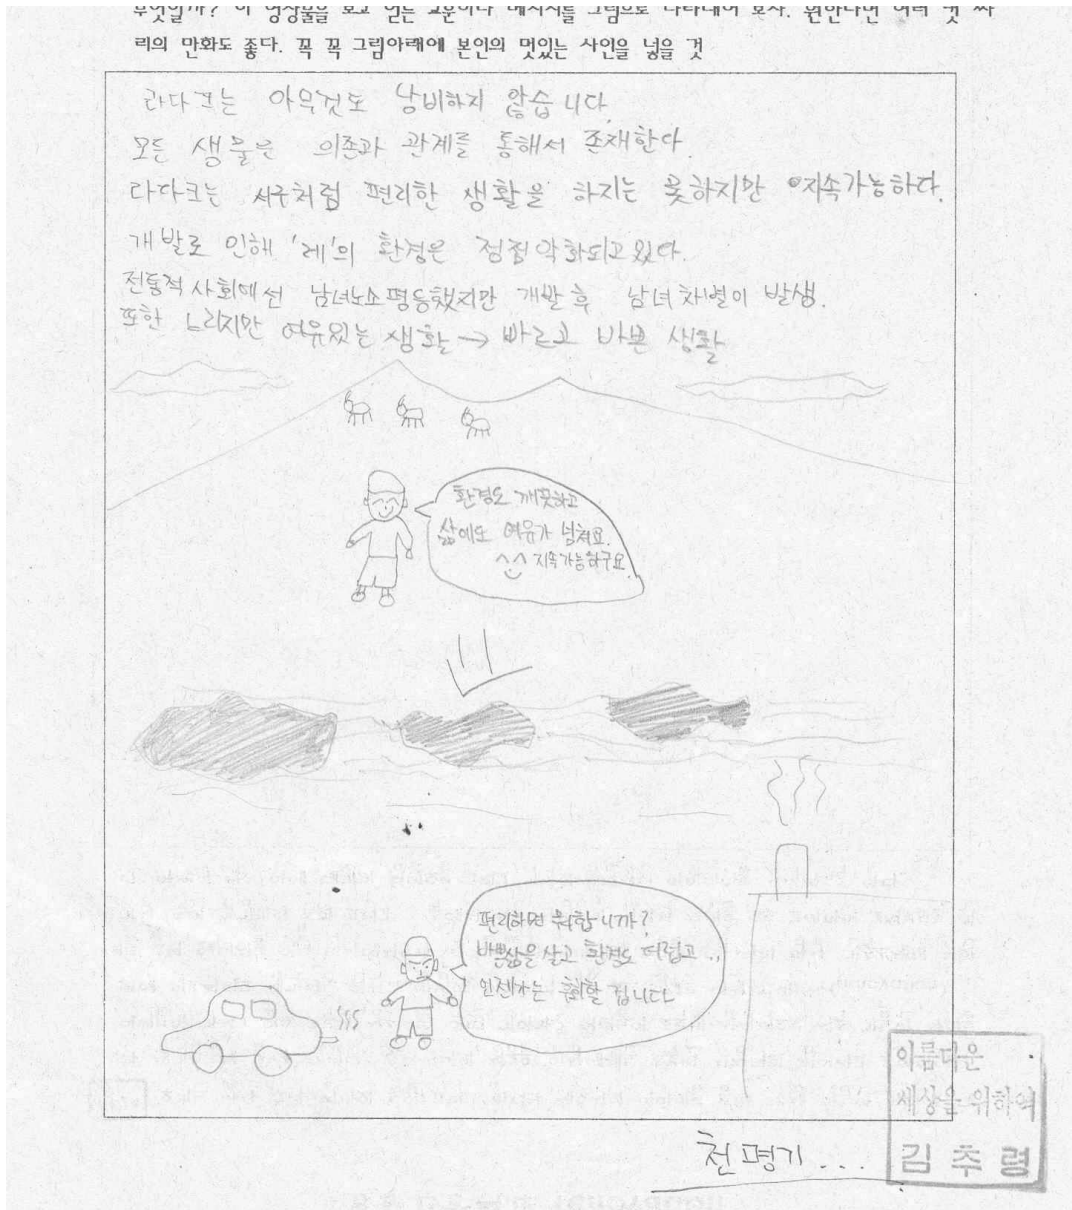 무엇일까? 이 영상물을 보고 얻은 교훈이나 메시지를 그림으로 나타내어 보자. 원한다면 여러 컷 짜
리의 만화도 좋다. 꼭 꼭 그림아래에 본인의 멋있는 사인을 넣을 것
라다크는 아무것도 낭비하지 않습니다.
모든 생물은 의존과 관계를 통해서 존재한다.
라다크는 서구처럼 편리한 생활을 하지는 못하지만 지속가능하다.
개발로 인해 '레'의 환경은 점점 악화되고 있다.
전통적 사회에선 남녀노소 평등했지만 개발 후 남녀 차별이 발생.
또한 느리지만 여유있는 생활 → 빠르고 바쁜 생활
환경도 깨끗하고
삶에도 여유가 넘쳐요.
^^ 지속가능하구요.
편리하면 뭐합니까?
바쁜삶을 살고 환경도 더럽고...
언젠가는 후회할 겁니다
아름다운
세상을 위하여
김추령
천명기...